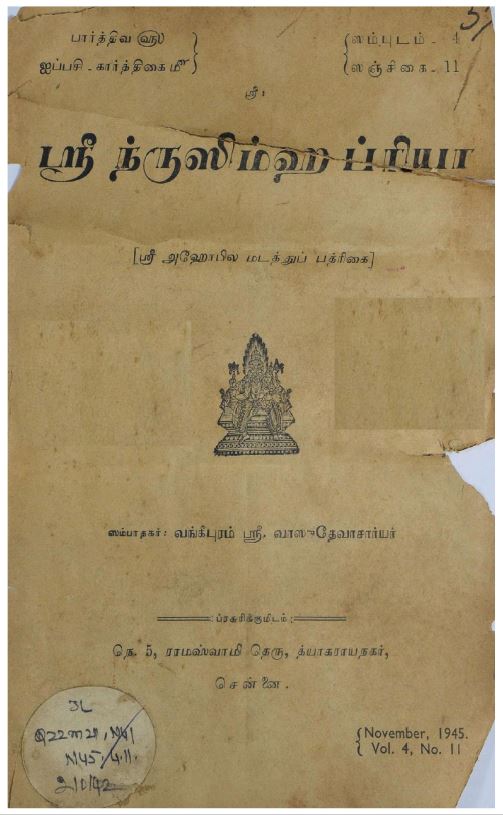 5
பார்த்திவ ௵
ஐப்பசி - கார்த்திகை ௴
ஸம்புடம் - 4
ஸஞ்சிகை - 11
ஸ்ரீ :
ஸ்ரீ ந்ருஸிம்ஹ ப்ரியா
[ஸ்ரீ அஹோபில மடத்துப் பத்ரிகை]
ஸம்பாதகர் : வங்கீபுரம் ஸ்ரீ. வாஸுதேவாசார்யர்
: ப்ரசுரிக்குமிடம் :
நெ. 5, ராமஸ்வாமி தெரு, த்யாகராயநகர்,
சென்னை.
November, 1945.
Vol. 4, No. 11
N41
N45, 4.11